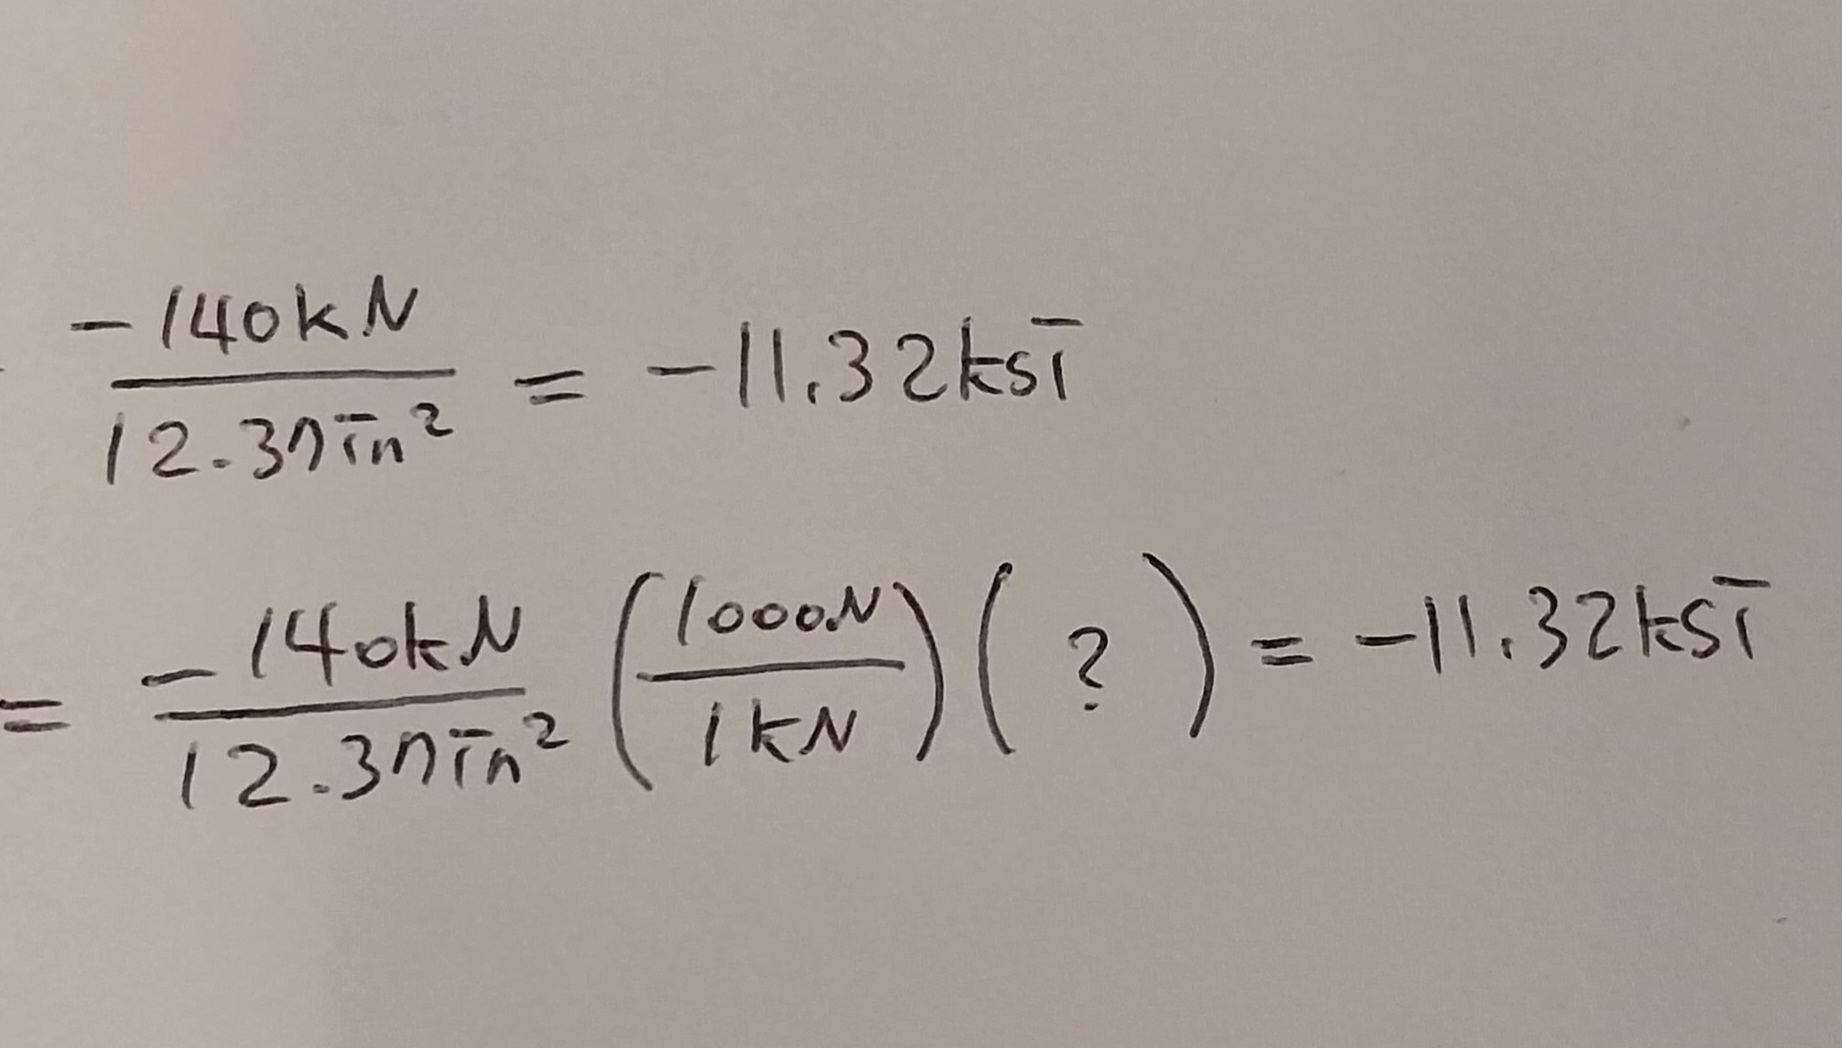 -140kN / 12.37in² = -11.32ksi
= -140kN / 12.37in² (1000N / 1kN) ( ? ) = -11.32ksi